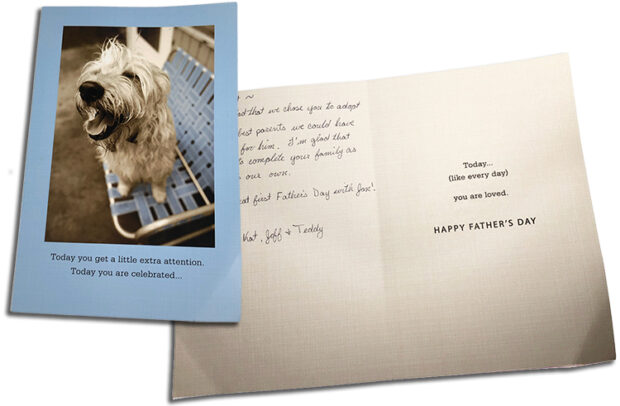 Today you get a little extra attention.
Today you are celebrated...
ad that we chose you to adopt
best parents we could have
for him. I'm glad that
to complete your family as
our own.
eat first Father's Day with
Kat, Jeff & Teddy
Today...
(like every day)
you are loved.
HAPPY FATHER'S DAY